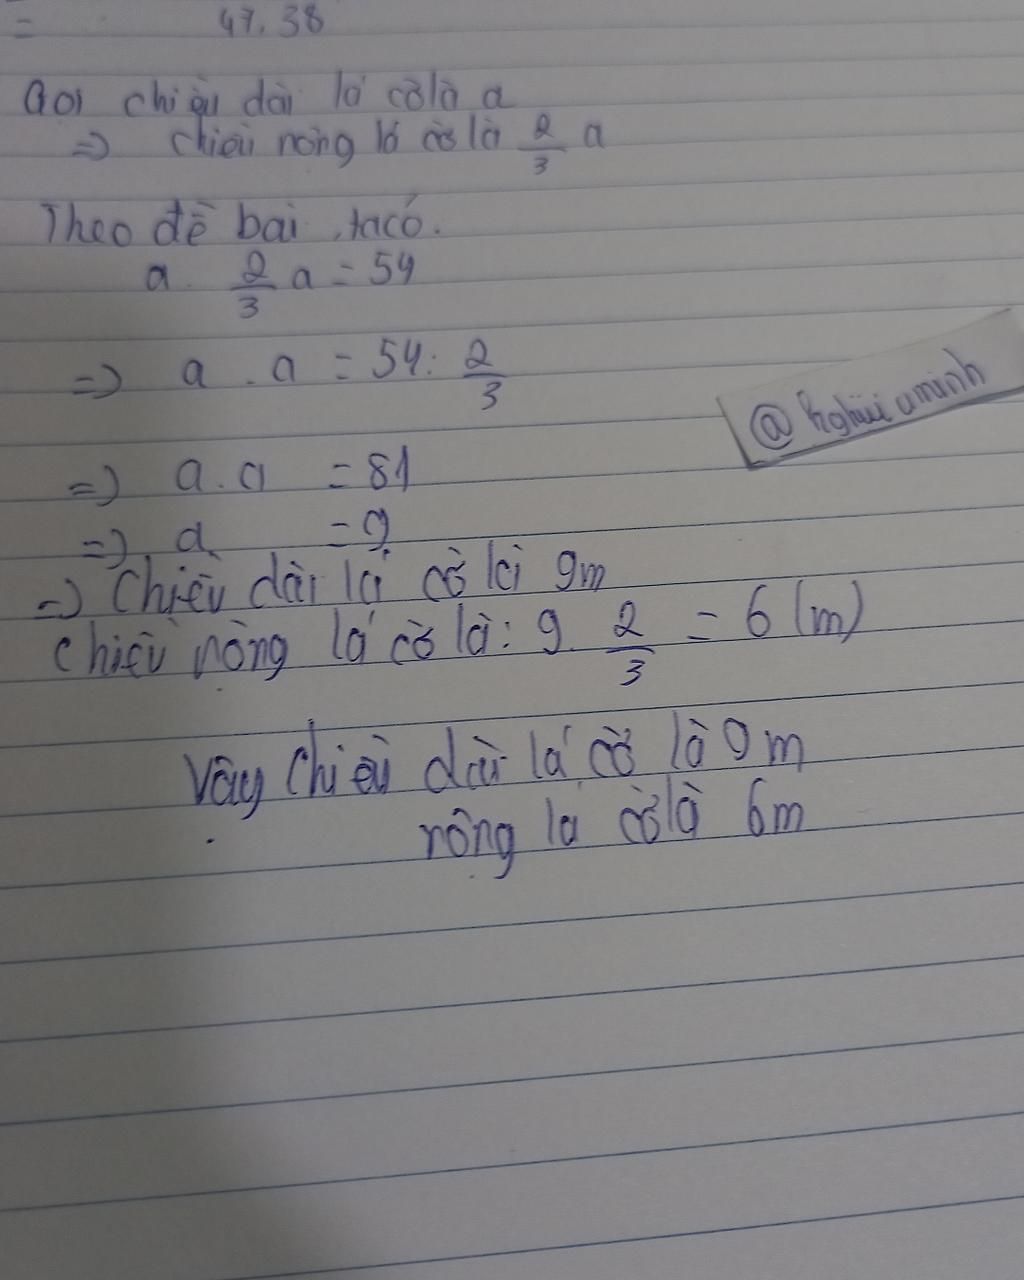 = 47.38
Gọi chiều dài lá cờ là a
=> chiều rộng lá cờ là 2/3 a
Theo đề bài, ta có.
a. 2/3 a = 54
=> a . a = 54: 2/3
=> a . a = 81
=> a = 9
=> Chiều dài lá cờ là 9m
chiều rộng lá cờ là: 9. 2/3 = 6 (m)
Vậy chiều dài lá cờ là 9m
rộng lá cờ là 6m